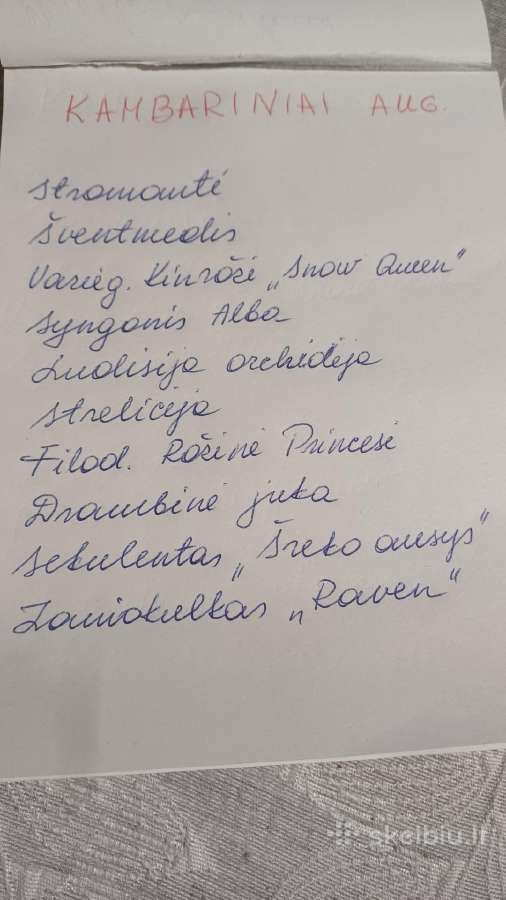 KAMBARINIAI AUG.
Stromantė
Šventmedis
Varieg. Kinrožė „Snow Queen"
Syngonis Alba
Ludisija orchidėja
Strelicija
Filod. Rožinė Princesė
Dramblinė juka
Sekulentas „Šreko ausys"
Zamiokulkas „Raven"
skelbiu.lt